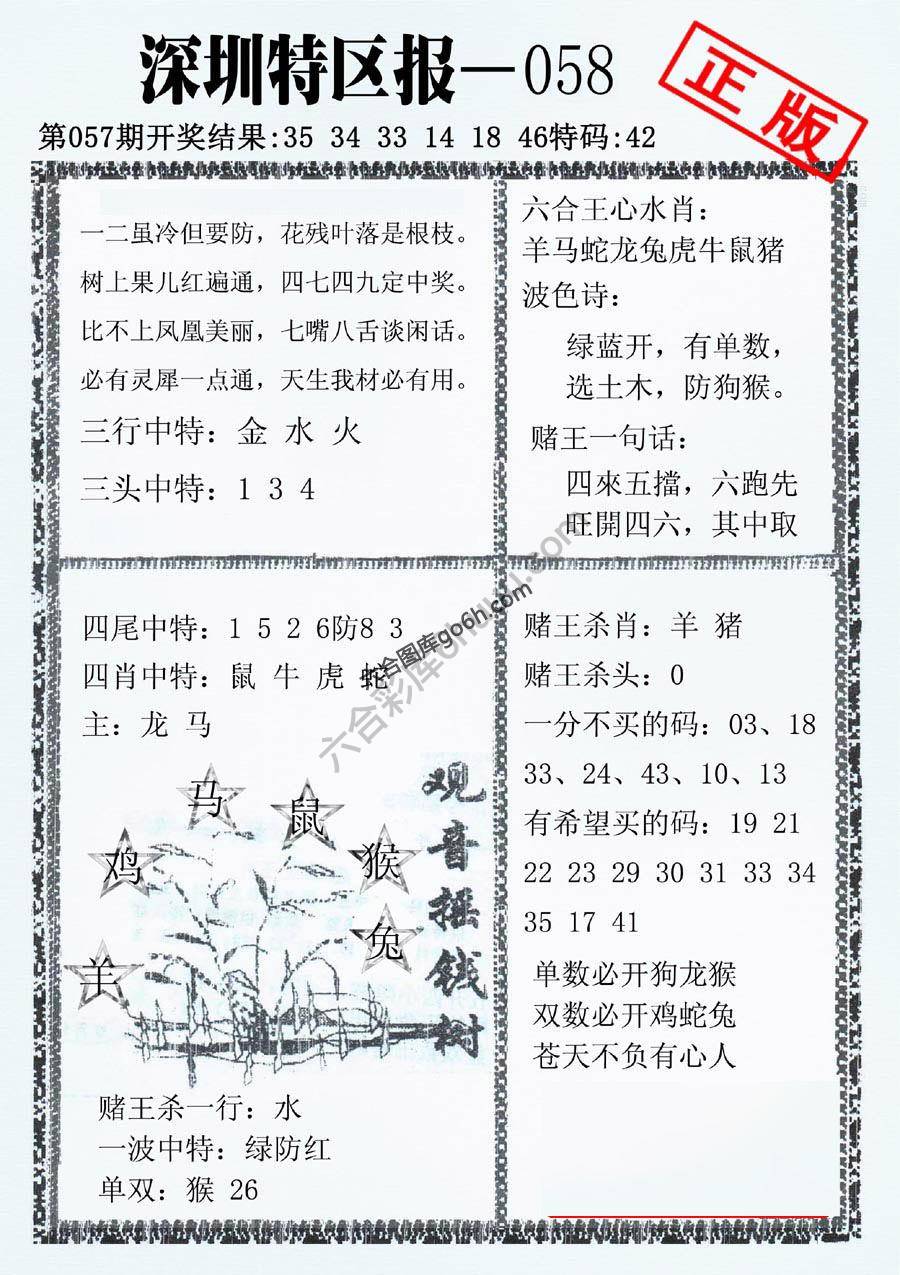 深圳特区报—058
正版
第057期开奖结果:35 34 33 14 18 46特码:42
一二虽冷但要防，花残叶落是根枝。
树上果儿红遍通，四七四九定中奖。
比不上凤凰美丽，七嘴八舌谈闲话。
必有灵犀一点通，天生我材必有用。
三行中特：金 水 火
三头中特：1 3 4
六合王心水肖：
羊马蛇龙兔虎牛鼠猪
波色诗：
绿蓝开，有单数，
选土木，防狗猴。
赌王一句话：
四來五擋，六跑先
旺開四六，其中取
四尾中特：1 5 2 6防8 3
四肖中特：鼠 牛 虎 蛇
主：龙 马
马
鼠
鸡
猴
兔
羊
观音摇钱树
赌王杀一行：水
一波中特：绿防红
单双：猴 26
赌王杀肖：羊 猪
赌王杀头：0
一分不买的码：03、18
33、24、43、10、13
有希望买的码：19 21
22 23 29 30 31 33 34
35 17 41
单数必开狗龙猴
双数必开鸡蛇兔
苍天不负有心人
合图库go6h.com
六合彩库